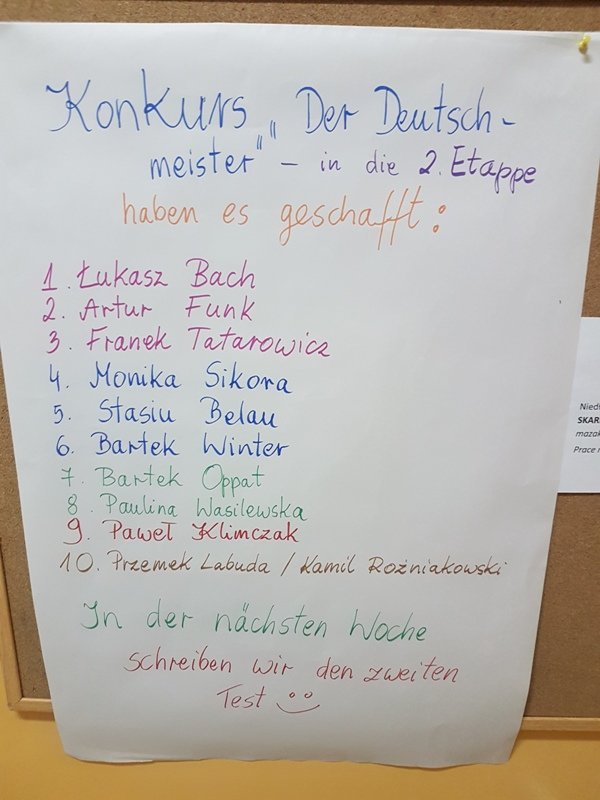 Konkurs „Der Deutsch-
meister" – in die 2. Etappe
haben es geschafft:
1. Łukasz Bach
2. Artur Funk
3. Franek Tatarowicz
4. Monika Sikora
5. Stasiu Belau
6. Bartek Winter
7. Bartek Oppat
8. Paulina Wasilewska
9. Paweł Klimczak
10. Przemek Labuda / Kamil Rożniakowski
In der nächsten Woche
schreiben wir den zweiten
Test
Prace